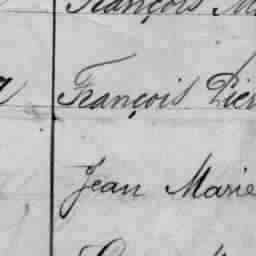 François M
François Pier
Jean Marie